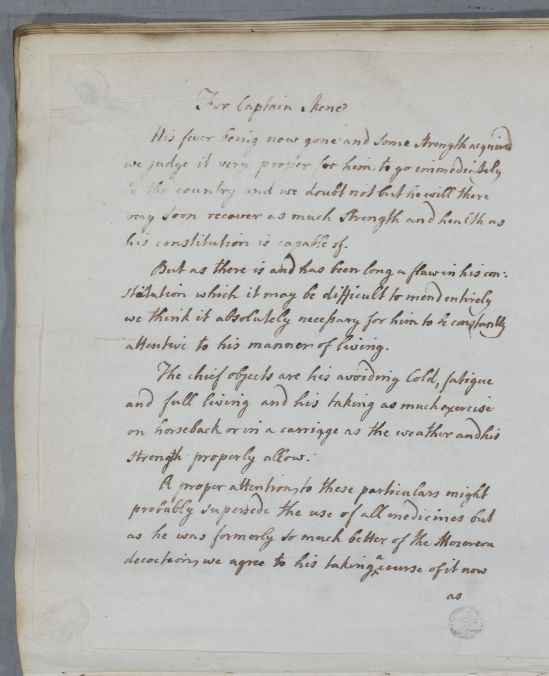 For Captain Skene
His fever being now gone and some strength acquired
we judge it very proper for him to go immediately
to the country and we doubt not but he will there
very soon recover as much strength and health as
his constitution is capable of.
But as there is and has been long a flaw in his con:
stitution which it may be difficult to mend entirely
we think it absolutely necessary for him to be constantly
attentive to his manner of living.
The chief objects are his avoiding Cold, fatigue
and full living and his taking as much exercise
on horseback or in a carriage as the weather and his
strength properly allow.
A proper attention to these particulars might
probably supersede the use of all medicines but
as he was formerly so much better of the Mezereon
decoction, we agree to his taking a course of it now
as